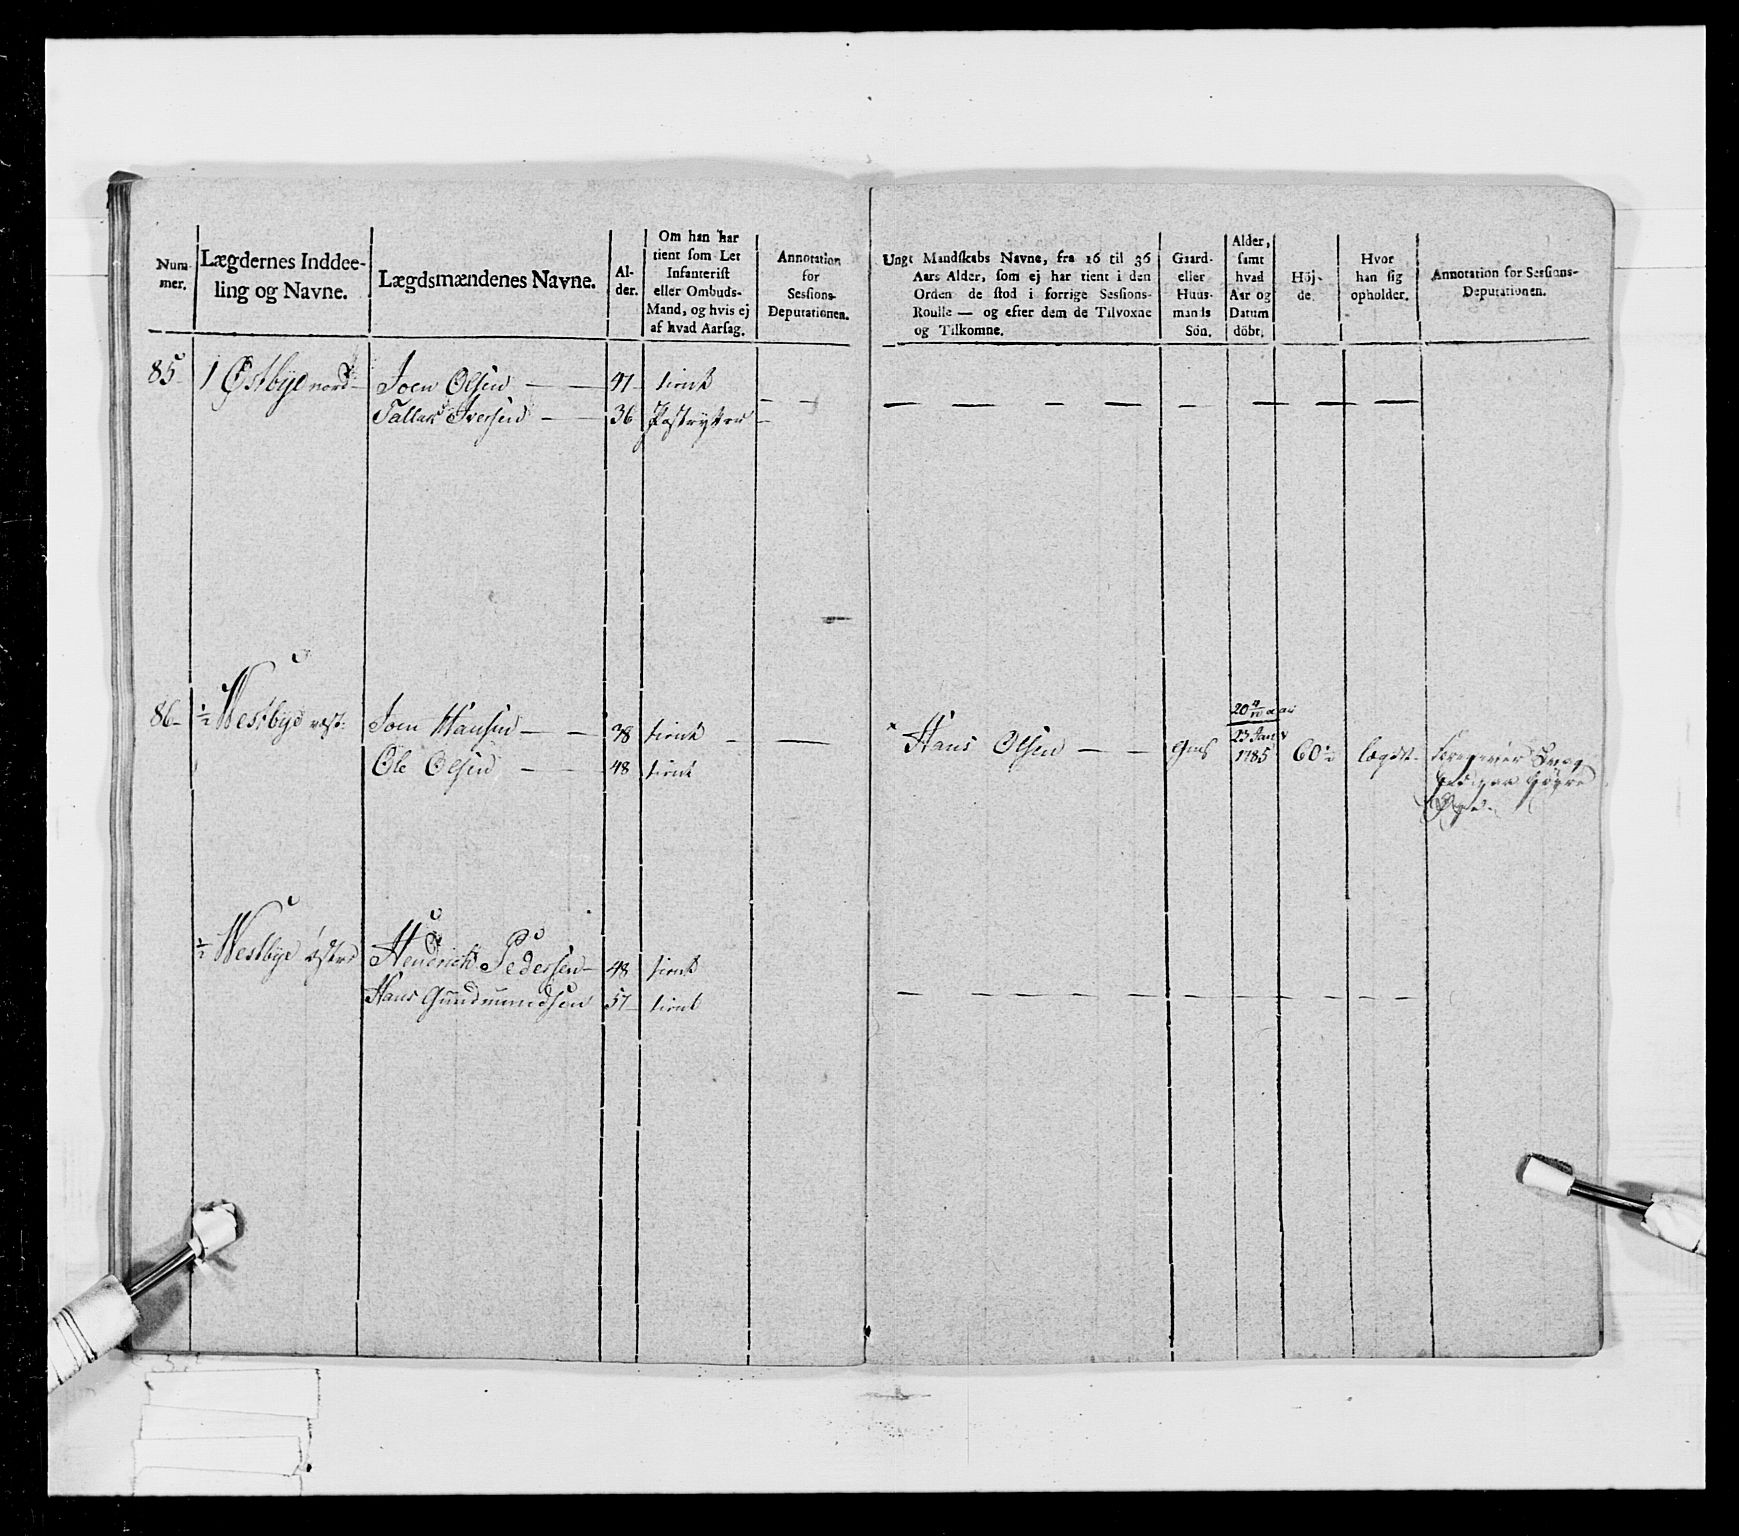 Num-
mer.
Lægdernes Inddee-
ling og Navne.
Lægdsmændenes Navne.
Al-
der.
Om han har
tient som Let
Infanterist
eller Ombuds-
Mand, og hvis ej
af hvad Aarsag.
Annotation
for
Sessions-
Deputationen.
Ungt Mandskabs Navne, fra 16 til 36
Aars Alder, som ej har tient i den
Orden de stod i forrige Sessions-
Roulle — og efter dem de Tilvoxne
og Tilkomne.
Gaard-
eller
Huus-
mands
Sön.
Alder,
samt
hvad
Aar og
Datum
döbt.
Höj-
de.
Hvor
han sig
opholder.
Annotation for Sessions-
Deputationen.
85 1 Østbye nord- Joen Olsen — — 47 tient
Tallak Iversen — — 36 Postrytter —
86- ½ Westbye vest- Joen Hansen — — 38 tient — —
Ole Olsen — — 48 tient
20
× Hans Olsen — — Gms 23 Jan 1785 60½ lægdet-
høyre
Øye-
½ Westbye østre Hendrich Pedersen- 48 tient
Hans Gundmundsen 57- tient